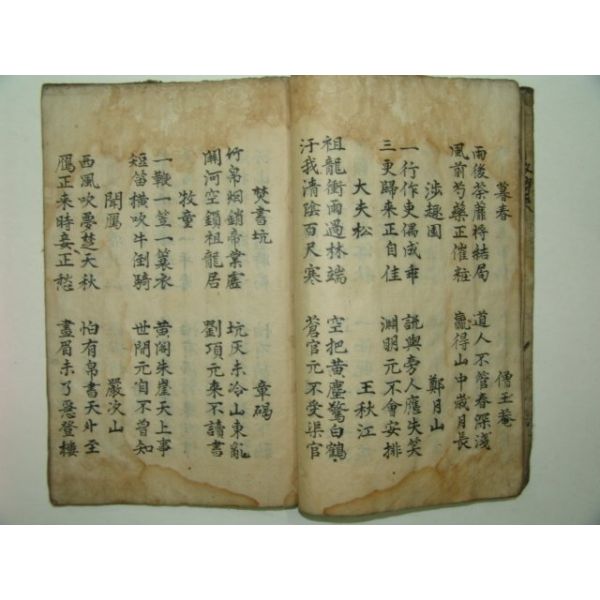 暮春 僧玉菴
雨後荼蘼將結局 道人不管春深淺
風前芍藥正催粧 贏得山中歲月長
涉趣園 鄭月山
一行作吏偶成乖 説與旁人應失笑
三更歸來正自佳 淵明元不會安排
大夫松 王秋江
祖龍衝雨過林端 空把黃塵驚白鶴
汙我清陰百尺寒 蒼官元不受渠官
焚書坑 章碣
竹帛烟銷帝業虛 坑灰未冷山東亂
關河空鎖祖龍居 劉項元來不讀書
牧童
一鞭一笠一蓑衣 黃閣朱崖天上事
短笛橫吹牛倒騎 世間元自不曾知
聞鴈 嚴次山
西風吹夢楚天秋 怕有帛書天外至
鴈正來時妾正愁 畫眉未了惡登樓